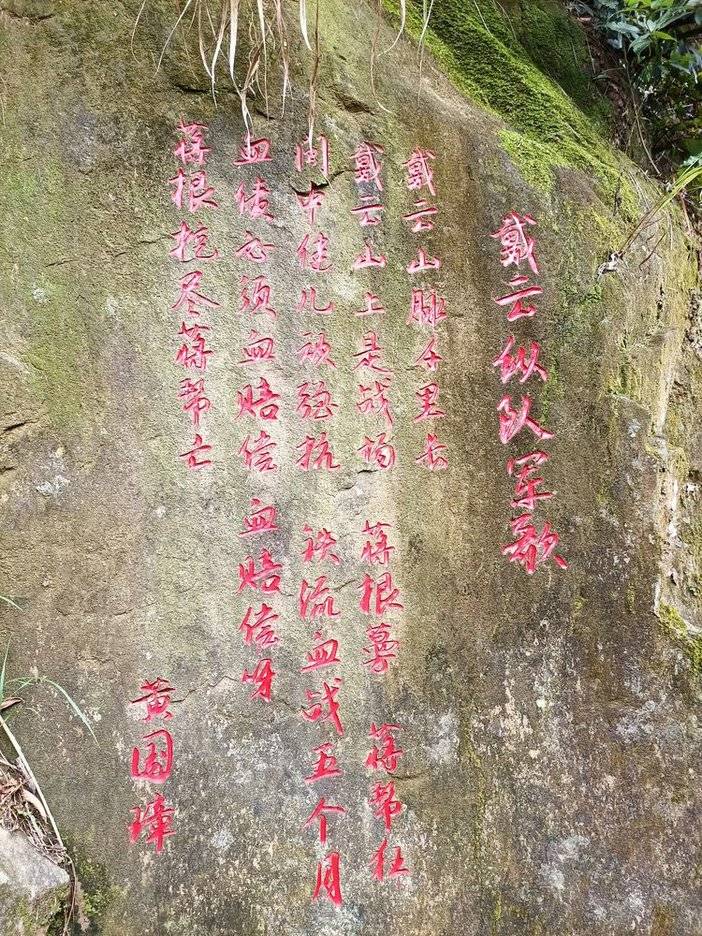 戴云纵队军歌
戴云山脉千里长
戴云山上是战场 蒋根 蒋帮狂
闽中健儿顽强抗 铁流血战五个月
血债必须血赔偿 血赔偿呀
蒋根挖尽蒋帮亡
黄国璋